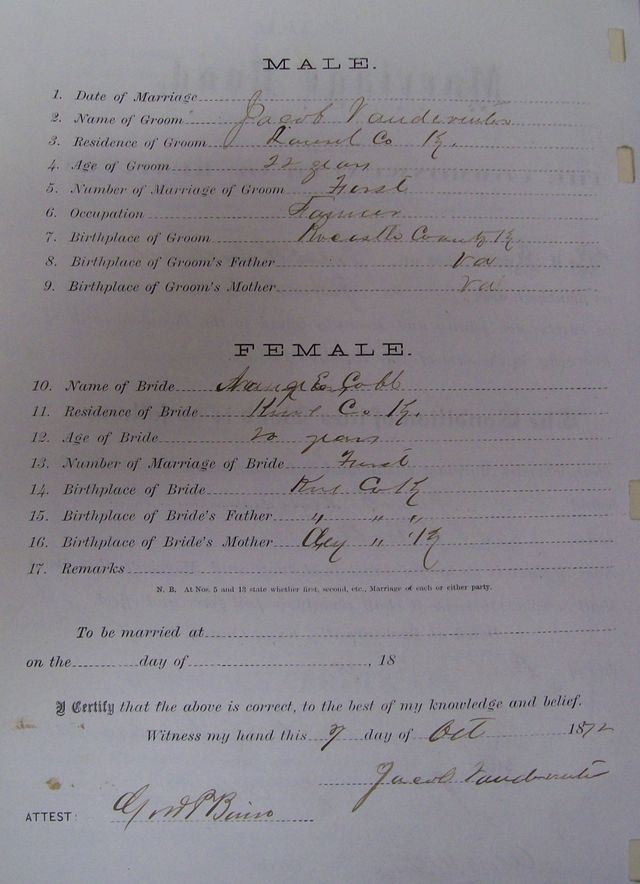 MALE.
1. Date of Marriage
2. Name of Groom Jacob Vanderventer
3. Residence of Groom Laurel Co K.
4. Age of Groom 22 years
5. Number of Marriage of Groom First
6. Occupation Farmer
7. Birthplace of Groom County K
8. Birthplace of Groom's Father Va
9. Birthplace of Groom's Mother Va
FEMALE.
10. Name of Bride E. Cobb
11. Residence of Bride Co. K.
12. Age of Bride 20 years
13. Number of Marriage of Bride First
14. Birthplace of Bride Co K
15. Birthplace of Bride's Father " " "
16. Birthplace of Bride's Mother Clay " K
17. Remarks
N. B. At Nos. 5 and 13 state whether first, second, etc., Marriage of each or either party.
To be married at
on the day of , 18
I Certify that the above is correct, to the best of my knowledge and belief.
Witness my hand this 7 day of Oct 1872
Jacob
ATTEST: